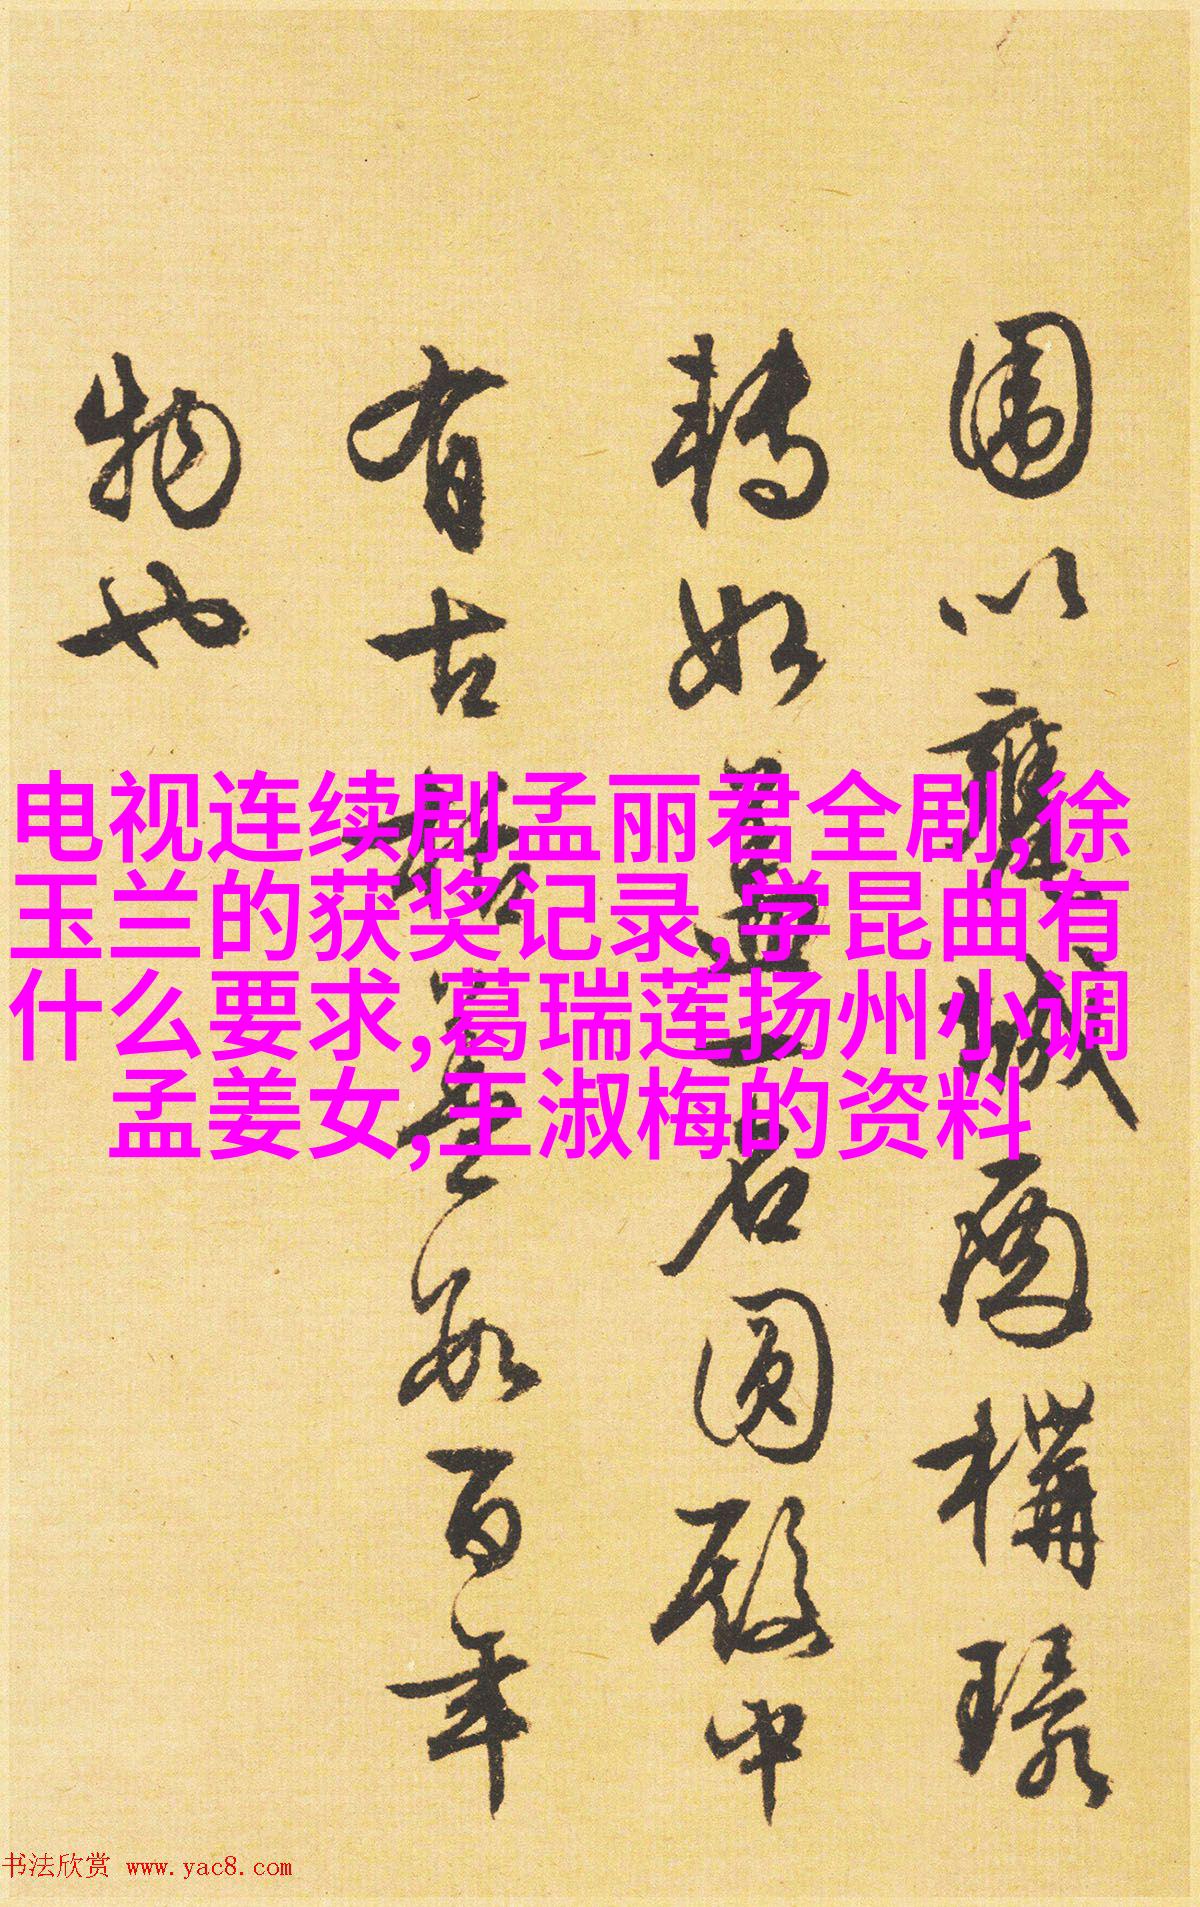 围以甕城
両構琭
转如盖
名圆殿中
有古
无安百年
物也
电视连续剧孟丽君全剧,徐
玉兰的获奖记录,学昆曲有
什么要求,葛瑞莲扬州小调
孟姜女,王淑梅的资料
书法欣赏 www.yac8.com